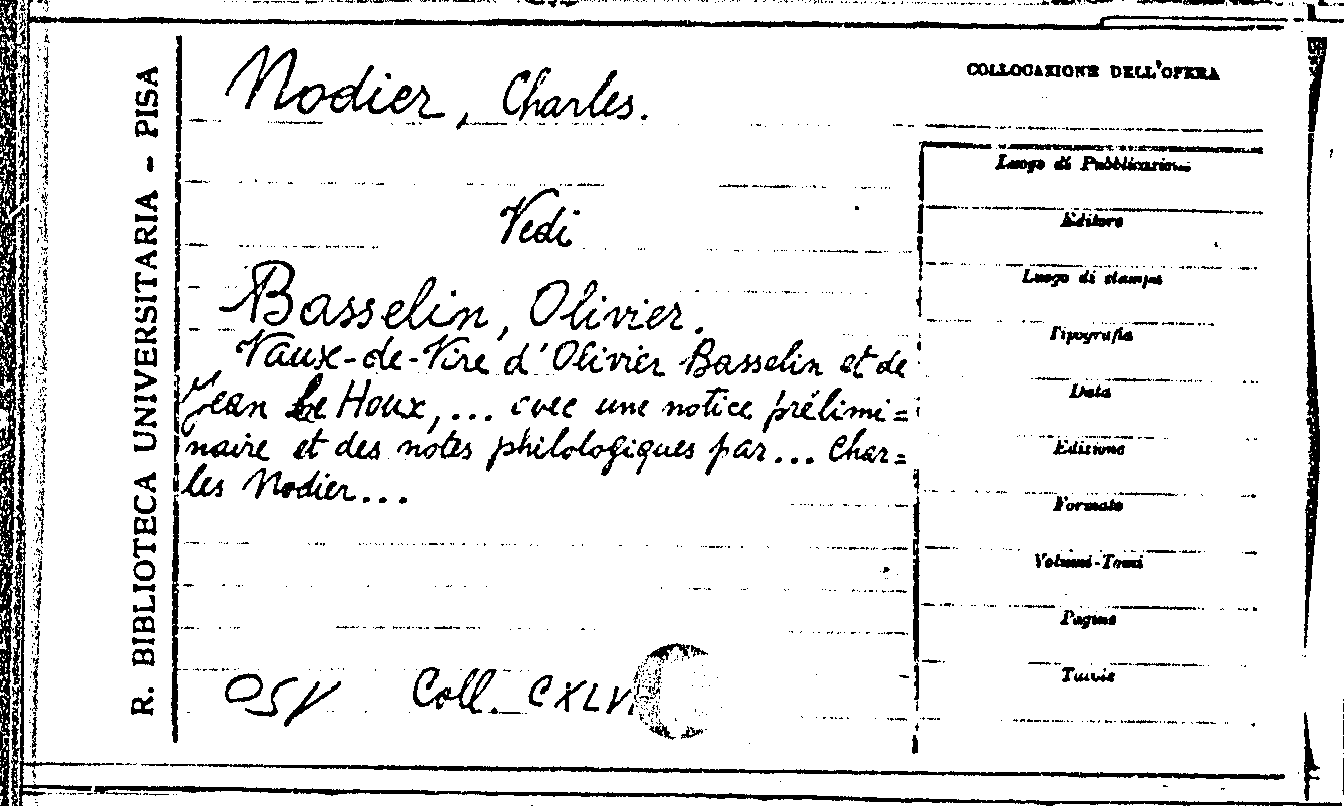 R. BIBLIOTECA UNIVERSITARIA - PISA
Nodier, Charles.
Vedi
Basselin, Olivier.
Vaux-de-Vire d'Olivier Basselin et de
Jean Le Houx, ... avec une notice prélimi=
naire et des notes philologiques par... Char=
les Nodier...
Coll. CXLV
COLLOCAZIONE DELL'OPERA
Luogo di Pubblicazione
Editore
Luogo di stampa
Tipografia
Data
Edizione
Formato
Volumi-Tomi
Pagine
Tavole